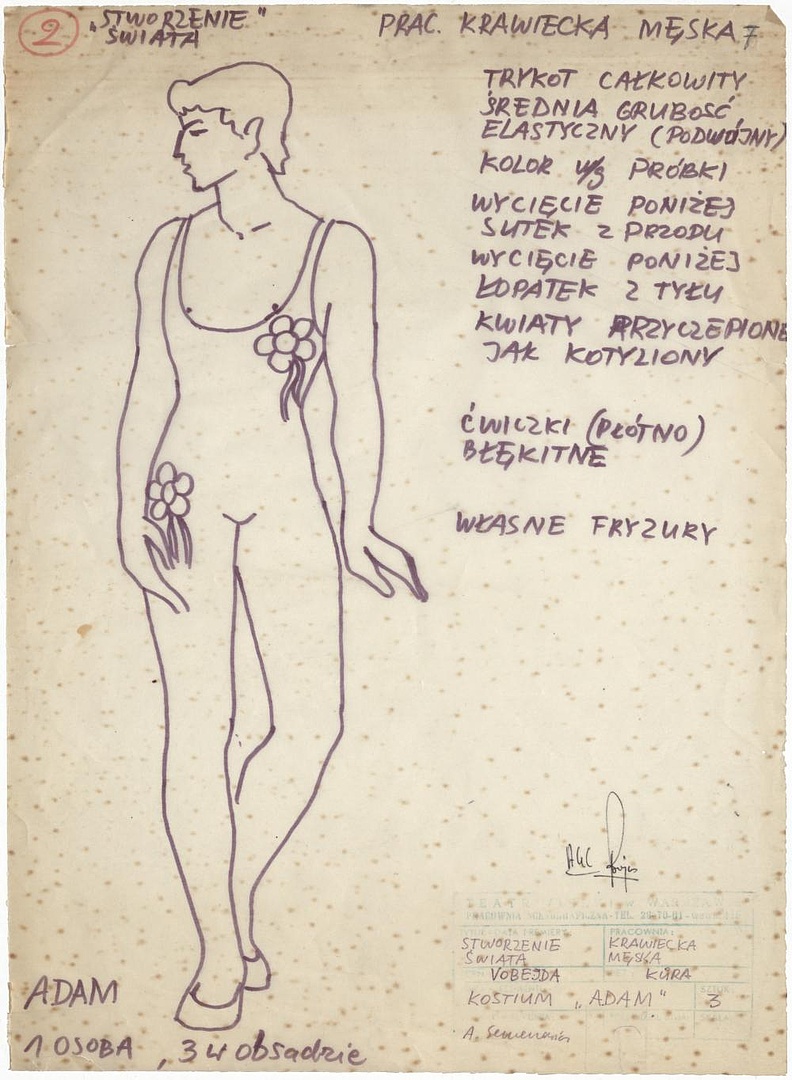 2 „STWORZENIE"
ŚWIATA
PRAC. KRAWIECKA MĘSKA 7
TRYKOT CAŁKOWITY
ŚREDNIA GRUBOŚĆ
ELASTYCZNY (PODWÓJNY)
KOLOR w/g PRÓBKI
WYCIĘCIE PONIŻEJ
SUTEK Z PRZODU
WYCIĘCIE PONIŻEJ
ŁOPATEK Z TYŁU
KWIATY PRZYCZEPIONE
JAK KOTYLIONY
ĆWICZKI (PŁÓTNO)
BŁĘKITNE
WŁASNE FRYZURY
TEATR W WARSZAWIE
PRACOWNIA TEL.
PRACOWNIA:
STWORZENIE KRAWIECKA
ŚWIATA MĘSKA
VOBEJDA KURA
KOSTIUM „ADAM" 3
ADAM
1 OSOBA, 3 w obsadzie